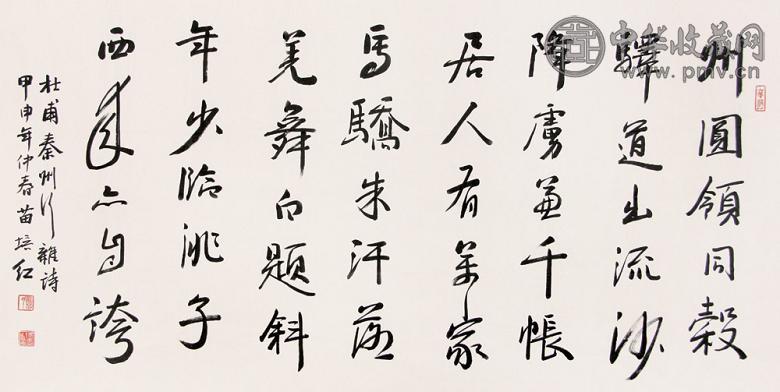 州圓領同穀
驛道出流沙
降虜兼千帳
居人有萬家
馬驕朱汗落
羌舞白題斜
年少臨洮子
西來亦自誇
杜甫秦州行雜詩
甲申年仲春苗培红
中华收藏网
www.pmv.cn